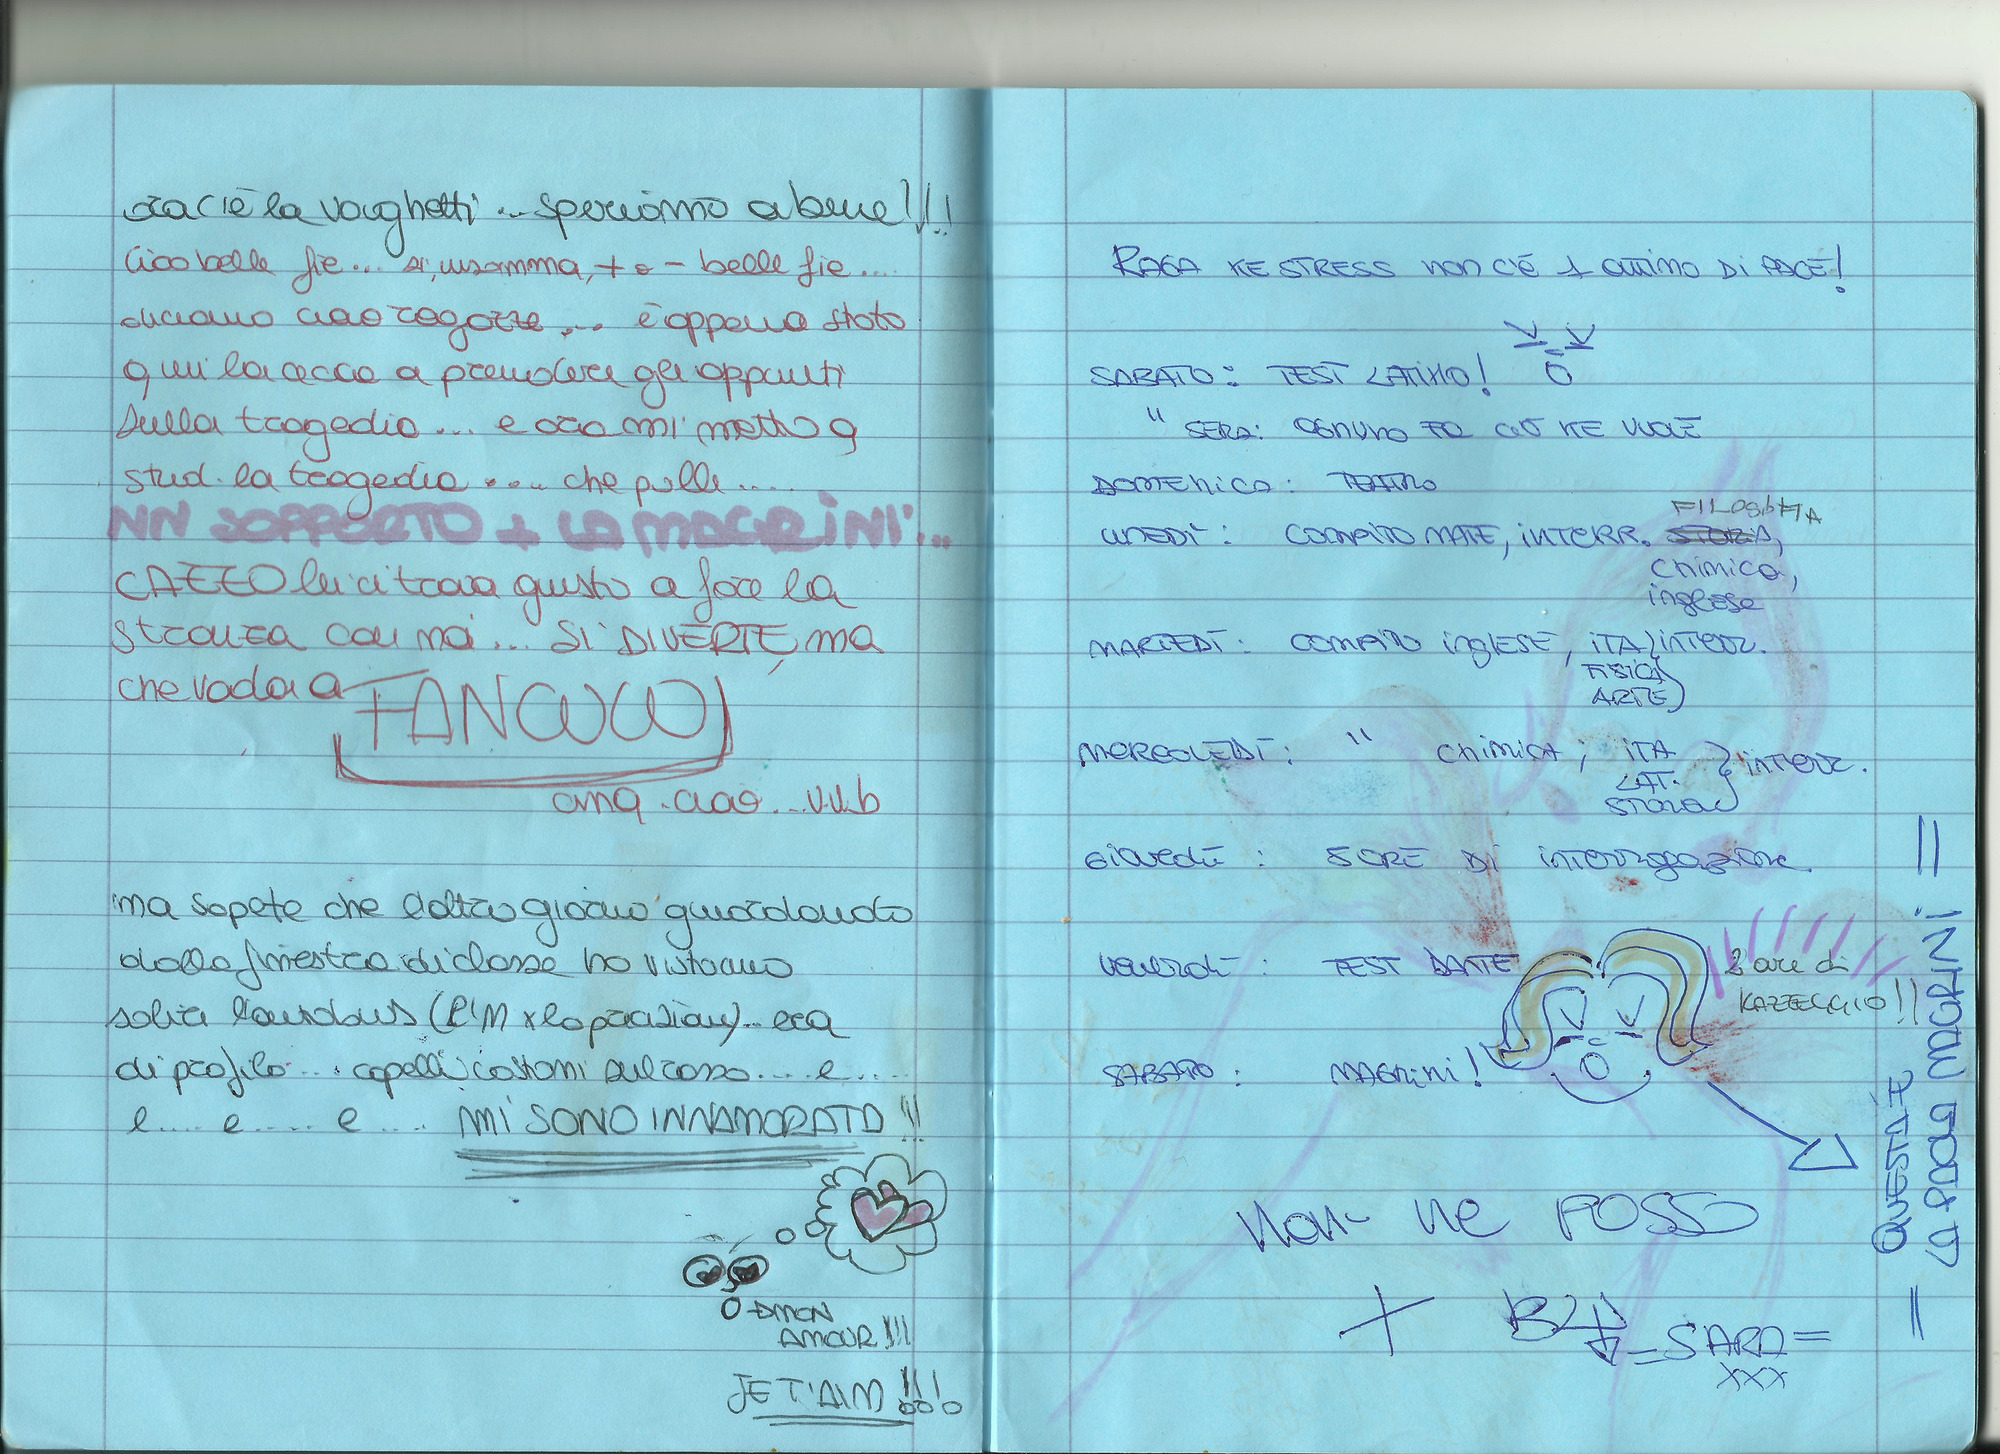 ora c'è la vanghetti... speriamo a bene!!!
Ciao belle fie... si, insomma, + o - belle fie....
diciamo ciao ragazze.... è appena stata
qui la cecca a prendere gli appunti
sulla tragedia.... e ora mi metto a
stud. la tragedia .... che palle....
NN SOPPORTO + LA MAGRINI...
CAZZO lei ci trova gusto a fare la
stronza con noi... SI DIVERTE, ma
che vada a FANCULO
cmq. ciao...v.v.b
ma sapete che l'altro giorno guardando
dalla finestra di classe ho visto uno
solita era
di profilo.... capelli castani sul rosso.... e....
e.... e.... e.... MI SONO INNAMORATA!!!
MON
AMOUR!!!
JE T'AIM!!!
RAGA KE STRESS NON C'È 1 ATTIMO DI PACE!
SABATO: TEST LATINO!
" SERA: OGNUNO FA CIÒ KE VUOLE
DOMENICA: TEATRO
FILOSOFIA
LUNEDÌ: COMPITO MATE, INTERR. STORIA,
chimica,
inglese
MARTEDÌ: COMPITO INGLESE, ITA } INTERR.
FISICA
ARTE
MERCOLEDÌ: " CHIMICA; ITA } INTERR.
LAT.
STORIA
GIOVEDÌ: 5 ORE DI INTERROGAZIONE
VENERDÌ: TEST DANTE
2 ore di
KAZZEGGIO!!
SABATO: MAGRINI!
NON NE POSSO
+ BY
=SARA=
XXX
= QUESTA È
LA PROF MAGRINI =